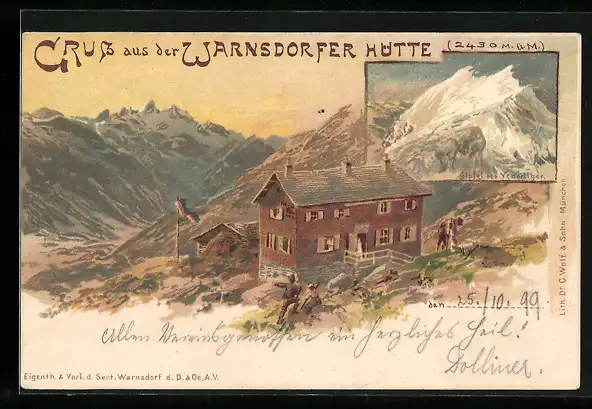 Gruß aus der Warnsdorfer Hütte (2430 M. ü.M.)
Gipfel des Venediger.
Lith. Dr. C. Wolf & Sohn München.
den 25./10. 99
Allen Vereinsgenossen ein herzliches Heil!
Dolliner.
Eigenth. & Verl. d. Sect. Warnsdorf d. D. & Oe. A.V.